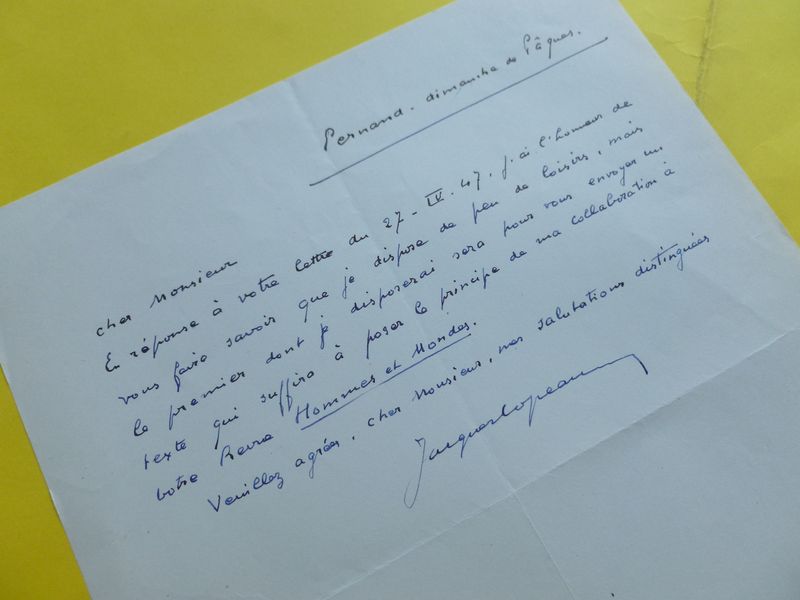 Pernand. dimanche de Pâques.
cher Monsieur
En réponse à votre lettre du 27-IV.47, j'ai l'honneur de
vous faire savoir que je dispose de peu de loisirs, mais
le premier dont je disposerai sera pour vous envoyer un
texte qui suffira à poser le principe de ma collaboration à
votre Revue Hommes et Mondes.
Veuillez agréer, cher Monsieur, mes salutations distinguées
Jacques Copeau